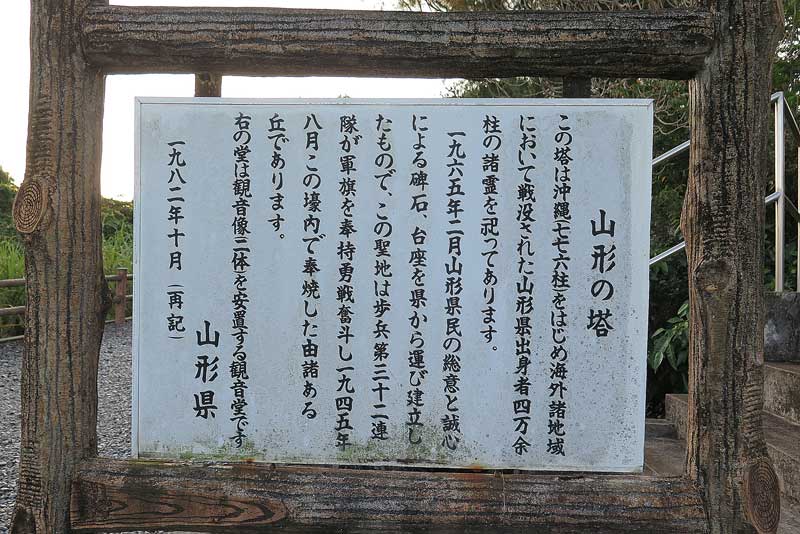 山形の塔
この塔は沖縄(七七六柱)をはじめ海外諸地域
において戦没された山形県出身者四万余
柱の諸霊を祀ってあります。
一九六五年二月山形県民の総意と誠心
による碑石、台座を県から運び建立し
たもので、この聖地は歩兵第三十二連
隊が軍旗を奉持勇戦奮斗し一九四五年
八月この壕内で奉焼した由諸ある
丘であります。
右の堂は観音像(二体)を安置する観音堂です
一九八二年十月(再記)
山形県